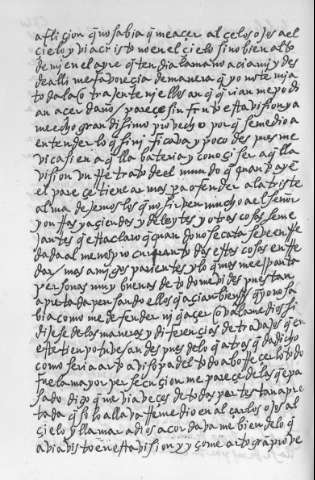 aflicion q̄ no sabia q̄ me açer alçe los ojos al
çielo y vi a cristo no en el cielo sino bien alto
de mi en el ayre q̄ tendia la mano açia mi y des
de alli me favoreçia de manera q̄ yo no temia
toda la otra jente ni ellos anq̄ q̄rian me podi
an açer daño / pareçe sin fruto esta vision y a
me echo grandisimo provecho porq̄ se me dio a
entender lo q̄ sinificava y poco despues me
vi casi en aq̄lla bateria y conoçi ser aq̄lla
vision un rretrato del mundo q̄ quanto ay en
el pareçe tiene armas pa ofender a la triste
alma dejemos los q̄ no sirven mucho al señor
y onrras y açiendas y deleytes y otras cosas seme
jantes q̄ esta claro q̄ quando no se cata se ve enrre
dada al menos procuran todas estas cosas enrre
dar mas amigos parientes y lo q̄ mas me espanta
personas muy buenas de todo me vi despues tan
apretada pensando ellos q̄ açian bien q̄ yo no sa
bia como me defender ni q̄ açer o valame dios si
dijese de las maneras y diferençias de trabajos q̄ en
este tienpo tube aun despues de lo q̄ atras q̄da dicho
como seria arto aviso pa del todo aborreçerlo todo
fue la mayor persecuçion me pareçe de las q̄ e pa
sado digo q̄ me vi a veçes de todas partes tan apre
tada q̄ solo allava rremedio en alçar los ojos al
çielo y llamar a dios acordavame bien de lo q̄
avia visto en esta vision y yçome arto prove